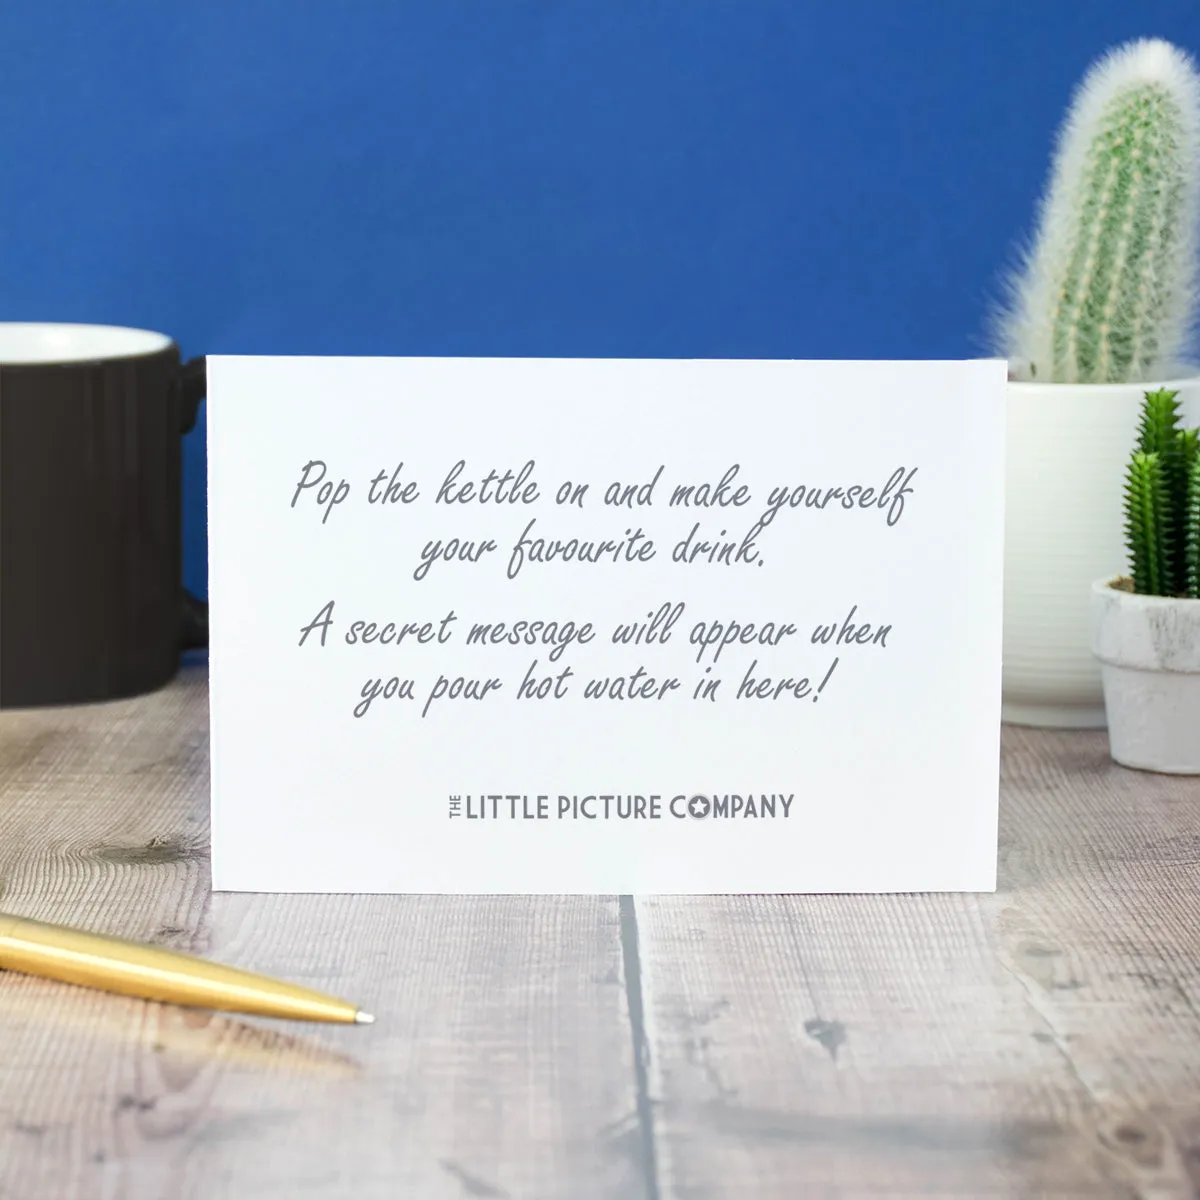 Pop the kettle on and make yourself
your favourite drink.
A secret message will appear when
you pour hot water in here!
THE LITTLE PICTURE COMPANY